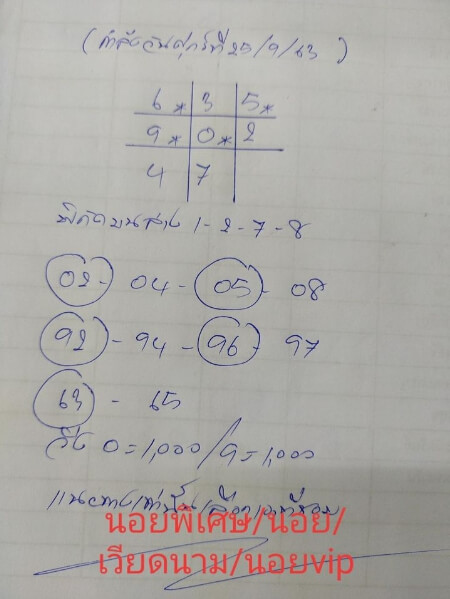 (กำลังวันศุกร์ที่ 25/9/63)
6* 3 5*
9* 0* 2
4 7
พิกัดบนล่าง 1-2-7-8
02 - 04 - 05 - 08
92 - 94 - 96 - 97
63 - 65
วิ่ง 0=1,000/9=1,000
แนวทางเท่านั้น
นอยพิเศษ/นอย/
เวียดนาม/นอยvip